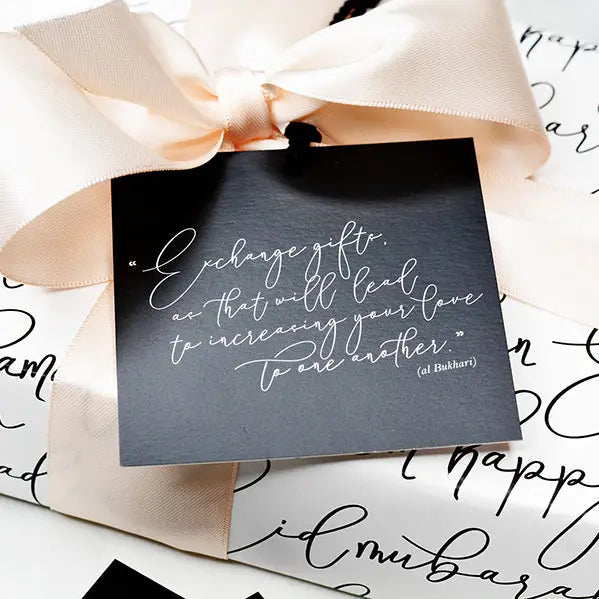 happ
bar
"Exchange gifts,
as that will lead
to increasing your love
to one another."
(al Bukhari)
am
n
ad
happy
id mubara